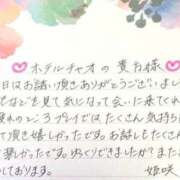 ♡ホテルチャオの貴方様♡
日はお誘い頂きありがとうございまし
などを見て気になって会いに来てくれ
れのところプレイではたくさん気持ち
て頂き嬉しかったです。お話もたくさん
楽しかったです。ゆっくりできましたか？また
しております。 姫咲